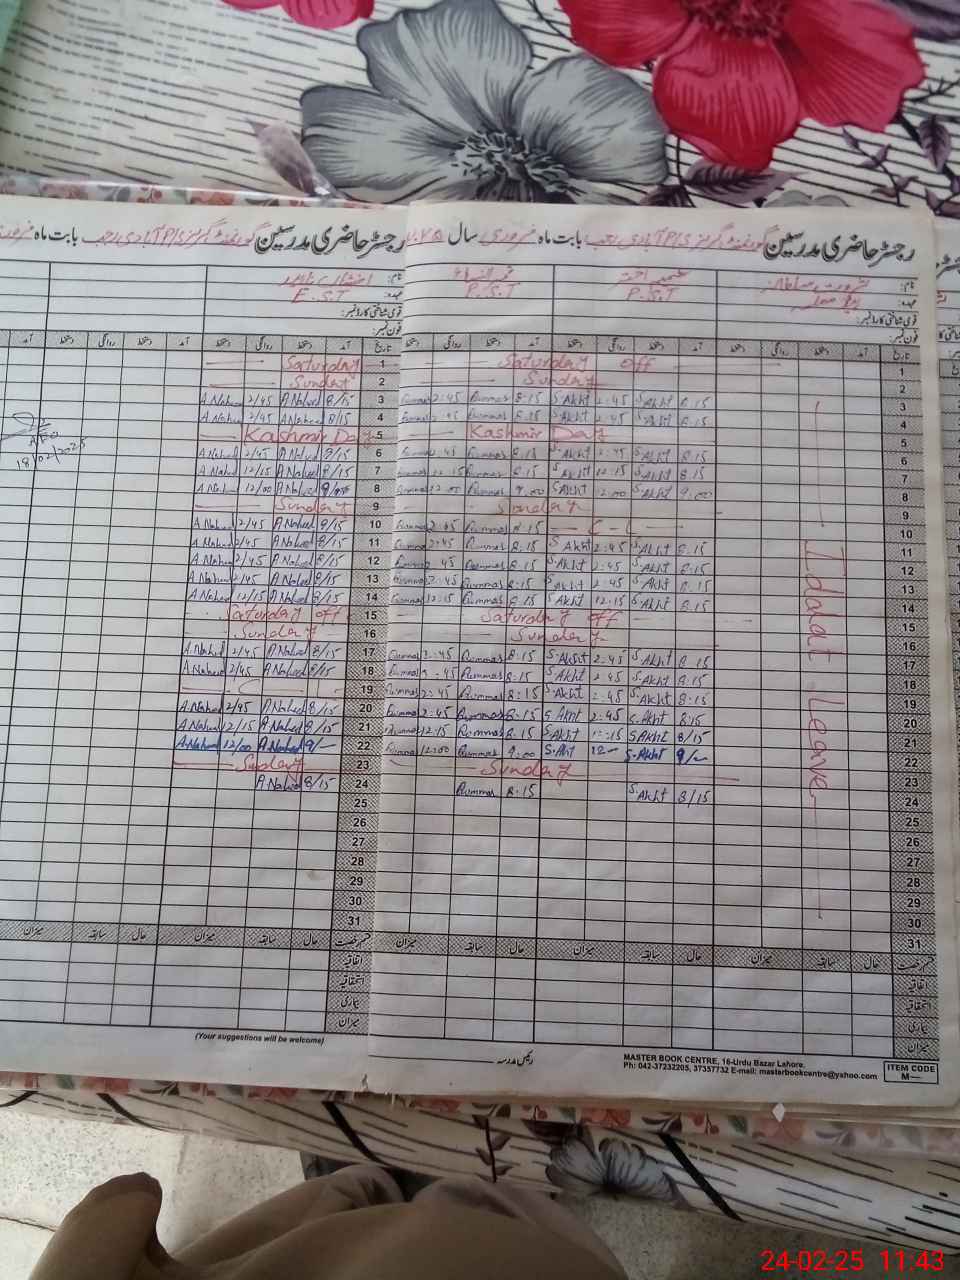 رجسٹر حاضری مدرسین گورنمنٹ گرلز بابت ماہ فروری سال
رجسٹر حاضری مدرسین گورنمنٹ گرلز بابت ماہ
نام:
عہدہ:
P.S.T P.S.T
قومی شناختی کارڈ نمبر:
فون نمبر:
نام:
عہدہ: E.S.T
قومی شناختی کارڈ نمبر:
فون نمبر:
تاریخ آمد دستخط روانگی دستخط آمد دستخط روانگی دستخط آمد دستخط روانگی دستخط
تاریخ آمد دستخط روانگی دستخط آمد دستخط روانگی دستخط آمد
Saturday 1 Saturday off 1
Sunday 2 Sunday 2
A.Naheed 2/45 A.Naheed 8/15 3 2:45 Rummas 8:15 S.Akht 2:45 S.Akht 8.15 3
A.Naheed 2/45 A.Naheed 8/15 4 2:45 Rummas 8:15 S.Akht 2:45 S.Akht 8.15 4
Kashmir Day 5 Kashmir Day 5
A.Naheed 2/45 A.Naheed 8/15 6 2:45 Rummas 8.15 S.Akht 2:45 S.Akht 8.15 6
A.Naheed 12/15 A.Naheed 8/15 7 12:15 Rummas 8.15 S.Akht 12:15 S.Akht 8.15 7
A.Naheed 12/00 A.Naheed 9/00 8 12:00 Rummas 9.00 S.Akht 12:00 S.Akht 9.00 8
Sunday 9 Sunday 9
A.Naheed 2/45 A.Naheed 8/15 10 2:45 Rummas 8.15 C-L 10
A.Naheed 2/45 A.Naheed 8/15 11 2:45 Rummas 8:15 S.Akht 2:45 S.Akht 8.15 11
A.Naheed 2/45 A.Naheed 8/15 12 2:45 Rummas 8:15 S.Akht 2:45 S.Akht 8.15 12
A.Naheed 2/45 A.Naheed 8/15 13 2:45 Rummas 8:15 S.Akht 2:45 S.Akht 8.15 13
A.Naheed 12/15 A.Naheed 8/15 14 12:15 Rummas 8.15 S.Akht 12:15 S.Akht 8.15 14
Saturday off 15 Saturday off 15
Sunday 16 Sunday 16
A.Naheed 2/45 A.Naheed 8/15 17 2:45 Rummas 8:15 S.Akht 2:45 S.Akht 8.15 17
A.Naheed 2/45 A.Naheed 8/15 18 2:45 Rummas 8:15 S.Akht 2:45 S.Akht 8.15 18
C L 19 2:45 Rummas 8:15 S.Akht 2:45 S.Akht 8:15 19
A.Naheed 2/45 A.Naheed 8/15 20 2:45 Rummas 8:15 S.Akht 2:45 S.Akht 8:15 20
A.Naheed 12/15 A.Naheed 8/15 21 12:15 Rummas 8.15 S.Akht 12:15 S.Akht 8/15 21
A.Naheed 12/00 A.Naheed 9/- 22 12:00 Rummas 9:00 S.Akht 12- S.Akht 9/- 22
Sunday 23 Sunday 23
A.Naheed 8/15 24 Rummas 8:15 S.Akht 8/15 24
25
26
27
28
29
30
31
25
26
27
28
29
30
31
Iddat Leave
AEO
18/02/2025
قسم رخصت حال سابقہ میزان حال سابقہ میزان حال سابقہ میزان
اتفاقیہ
استحقاقیہ
بیماری
میزان
قسم رخصت حال سابقہ میزان حال سابقہ میزان
اتفاقیہ
استحقاقیہ
بیماری
میزان
(Your suggestions will be welcome)
رئیس مدرسہ
MASTER BOOK CENTRE, 16-Urdu Bazar Lahore.
Ph: 042-37232205, 37357732 E-mail: masterbookcentre@yahoo.com
ITEM CODE
M—
24-02-25 11.43